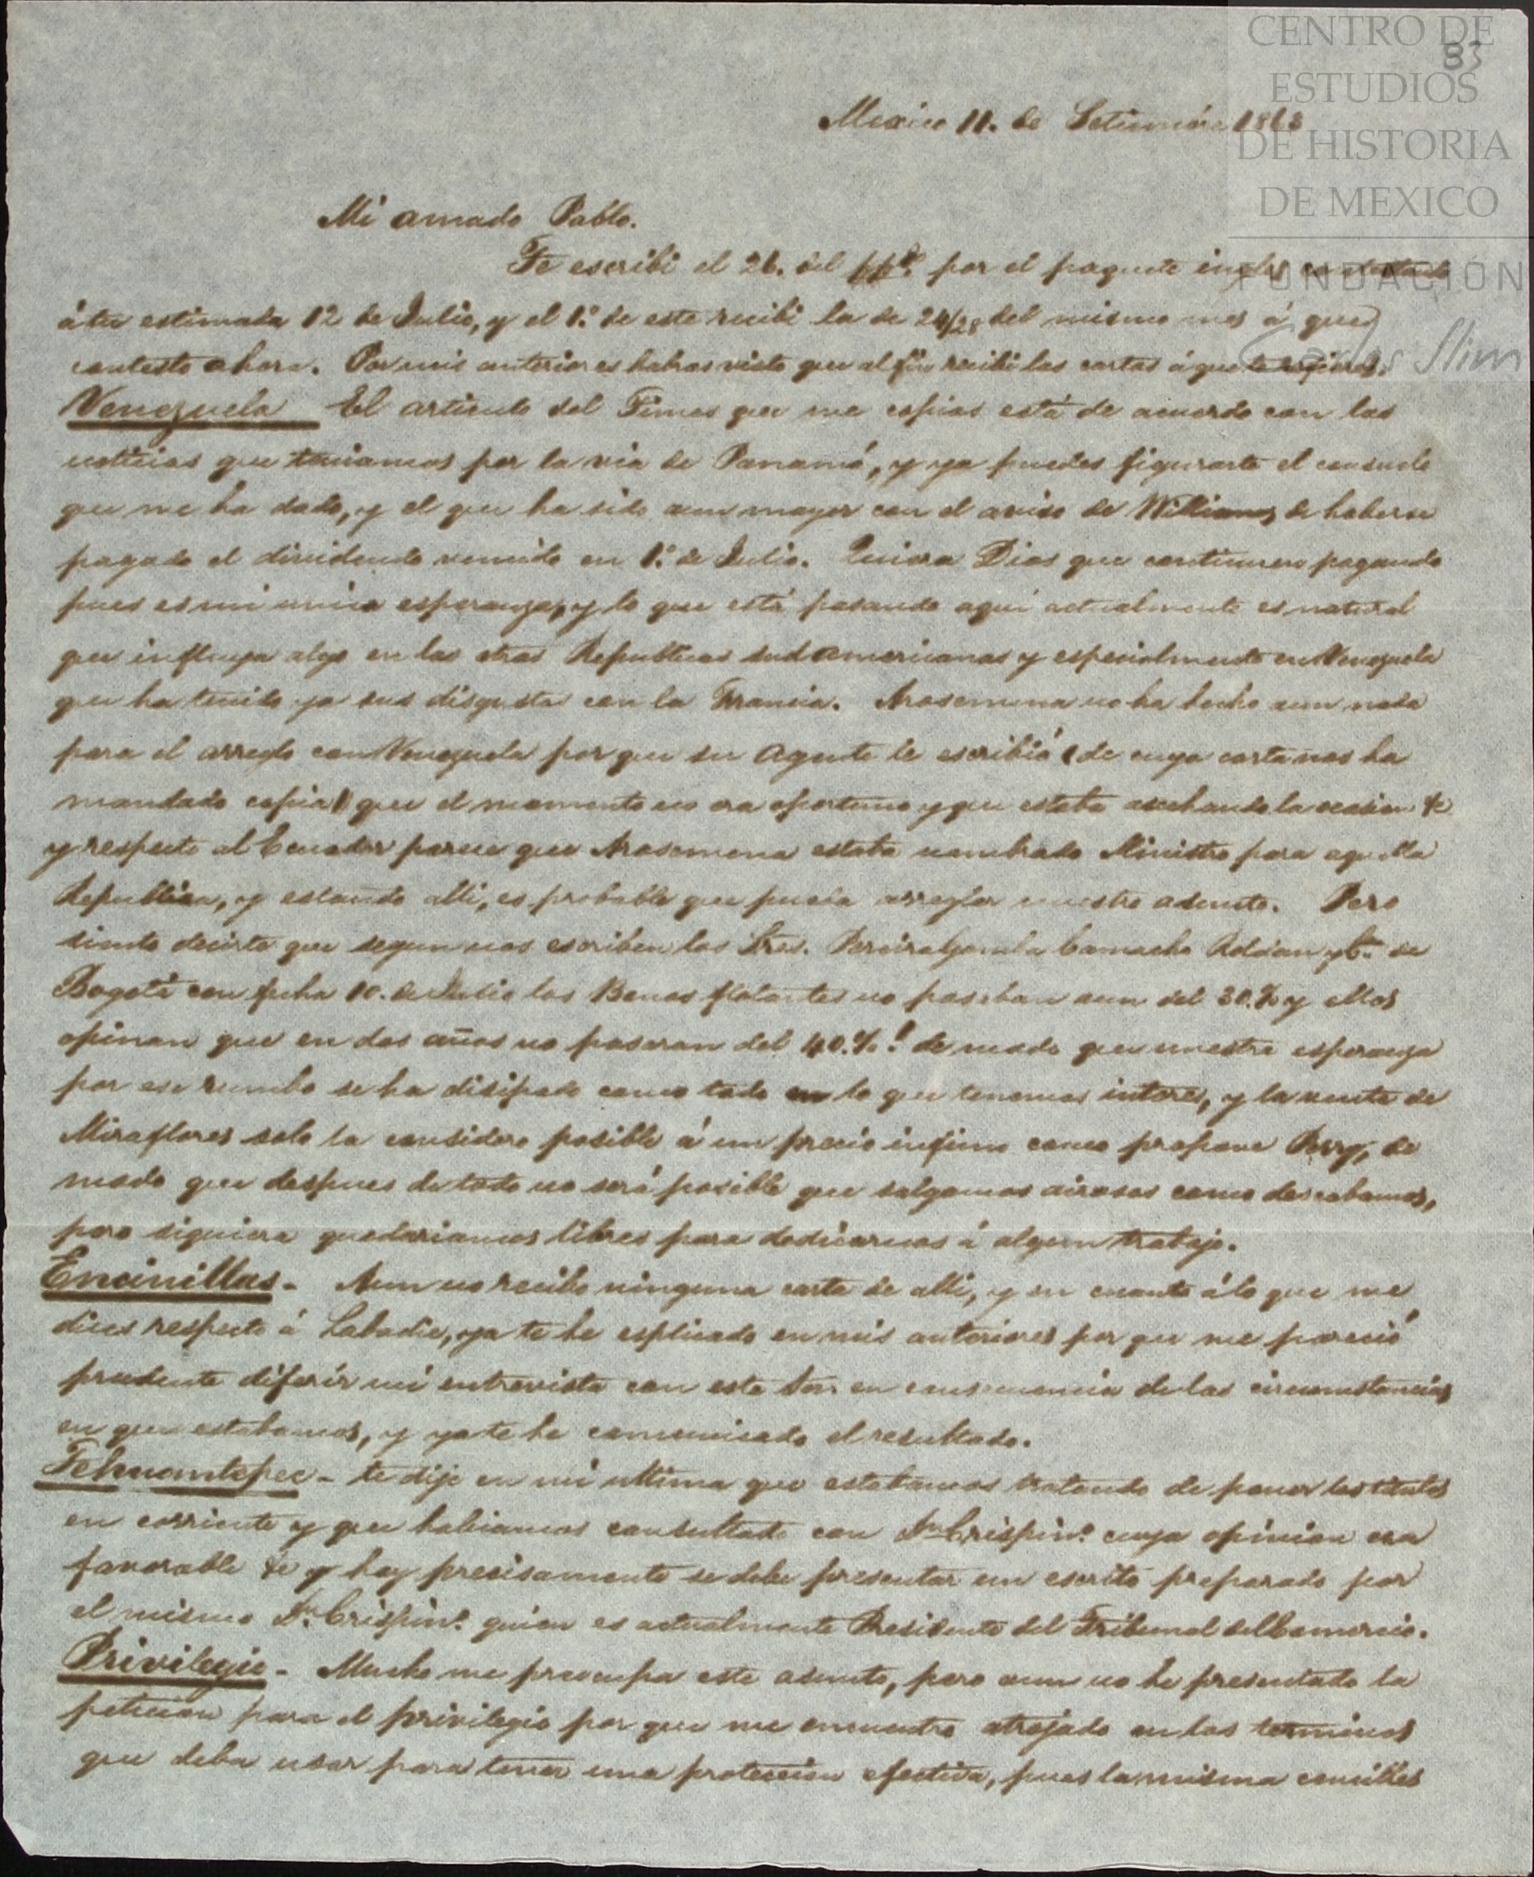 CENTRO DE
83
ESTUDIOS
DE HISTORIA
DE MEXICO
FUNDACIÓN
Carlos Slim
Mexico 11. de Setiembre 1863
Mi amado Pablo.
Te escribi el 26. del ppdo. por el paquete ingles contestando
á tu estimada 12 de Julio, y el 1º. de este recibi la de 24/28 del mismo mes á que
contesto ahora. Por mis anteriores habras visto que al fin recibi las cartas á que te refieres.
Venezuela El articulo del Times que me copias está de acuerdo con las
noticias que teniamos por la via de Panamá, y ya puedes figurarte el consuelo
que me ha dado, y el que ha sido aun mayor con el aviso de Williams de haberse
pagado el dividendo vencido en 1º. de Julio. Quiera Dios que continuen pagando
pues es mi unica esperanza, y lo que está pasando aqui actualmente es natural
que influya algo en las otras Republicas sud americanas y especialmente en Venezuela
que ha tenido ya sus disgustos con la Francia. Arosemena no ha hecho aun nada
para el arreglo con Venezuela por que su Agente le escribió (de cuya carta nos ha
mandado copia) que el momento no era oportuno y que estaba asechando la ocasion &c
y respecto al Ecuador parece que Arosemena estaba nombrado Ministro para aquella
Republica, y estando alli, es probable que pueda arreglar nuestro asunto. Pero
siento decirte que segun nos escriben los Sres. Pereira Gamba Camacho Roldan y Ca. de
Bogotá con fecha 10. de Julio los Bonos flotantes no pasaban aun del 30.% y ellos
opinan que en dos años no pasaran del 40.%.! de modo que nuestra esperanza
por ese rumbo se ha disipado como todo en lo que tenemos interes, y la venta de
Miraflores solo la considero posible á un precio infimo como propone Perry, de
modo que despues de todo no será posible que salgamos airosos como deseabamos,
pero siquiera quedariamos libres para dedicarnos á algun trabajo.
Encinillas - Aun no recibo ninguna carta de alli, y en cuanto á lo que me
dices respecto á Labadie, ya te he esplicado en mis anteriores por que me pareció
prudente diferir mi entrevista con este Sor. en consecuencia de las circunstancias
en que estabamos, y ya te he comunicado el resultado.
Tehuantepec - te dije en mi ultima que estabamos tratando de poner los titulos
en corriente y que habiamos consultado con Dn. Crispino. cuya opinion era
favorable &c y hoy precisamente se debe presentar un escrito preparado por
el mismo Dn. Crispino. quien es actualmente Presidente del Tribunal del Comercio.
Privilegio - Mucho me preocupa este asunto, pero aun no he presentado la
peticion para el privilegio por que me encuentro atrojado en los terminos
que deba usar para tener una proteccion efectiva, pues la misma